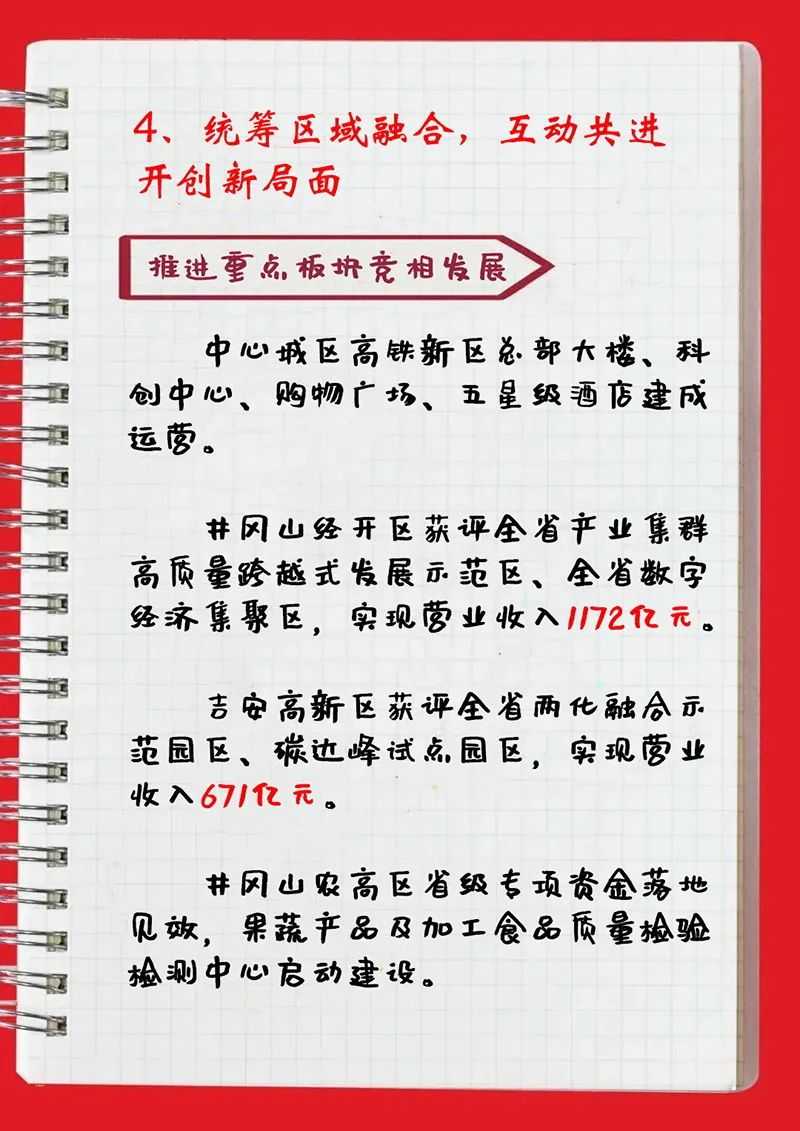 4、统筹区域融合，互动共进
开创新局面
推进重点板块竞相发展
中心城区高铁新区总部大楼、科
创中心、购物广场、五星级酒店建成
运营。
井冈山经开区获评全省产业集群
高质量跨越式发展示范区、全省数字
经济集聚区，实现营业收入1172亿元。
吉安高新区获评全省两化融合示
范园区、碳达峰试点园区，实现营业
收入671亿元。
井冈山农高区省级专项资金落地
见效，果蔬产品及加工食品质量检验
检测中心启动建设。